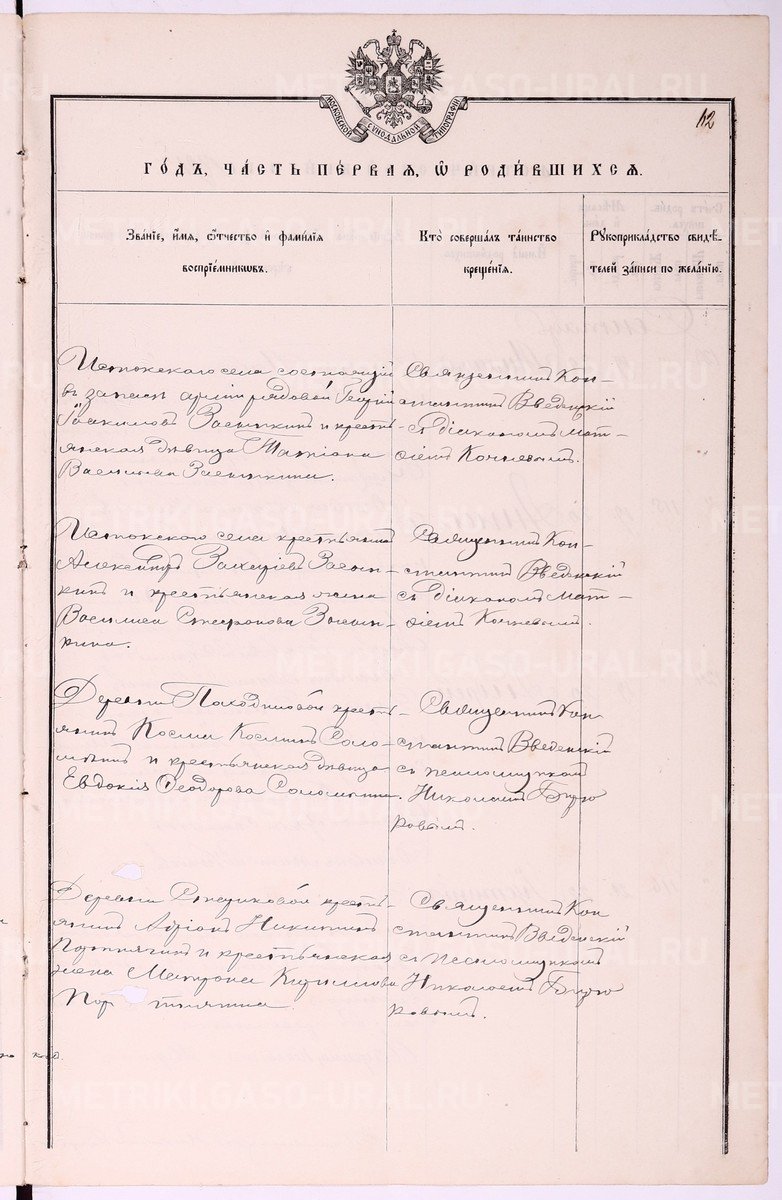 МОСКОВСКОЙ СѴНОДАЛЬНОЙ ТИПОГРАФІИ
42
ГО́ДЪ, ЧА́СТЬ ПЕ́РВАЯ, Ѽ РОДИ́ВШИХСЯ.
Зва́нїе, и҆́мя, ѻ҆́тчество и҆ фами́лїя
воспрїе́мникѡвъ.
Кто̀ соверша́лъ та́инство
креще́нїя.
Рꙋкоприкла́дство свидѣ́-
телей за́писи по жела́нїю.
Истокскаго села состоящій
въ запасѣ арміи рядовой Георгій
Іоакимовъ Засыпкинъ и кресть-
янская дѣвица Татіана
Васильева Засыпкина.
Священникъ Кон-
стантинъ Введенскій
съ діакономъ Мат-
ѳіемъ Кочневымъ.
Истокского села крестьянинъ
Александръ Захаріевъ Засып-
кинъ и крестьянская жена
Васса Стефанова Засып-
кина.
Священникъ Кон-
стантинъ Введенскій
съ діакономъ Мат-
ѳіемъ Кочневымъ.
Деревни Походиловой кресть-
янинъ Косма Косминъ Соло-
мѣинъ и крестьянская дѣвица
Евдокія Ѳеодорова Соломѣина.
Священникъ Кон
стантинъ Введенскій
съ псаломщикомъ
Николаемъ Бирю
ковымъ.
Деревни крестъ-
янинъ Никитинъ
и крестьянская
жена Матрона Кириллова
Священникъ Кон
стантинъ Введенскій
съ псаломщикомъ
Николаемъ Бирю
ковымъ.
METRIKI.GASO-URAL.RU